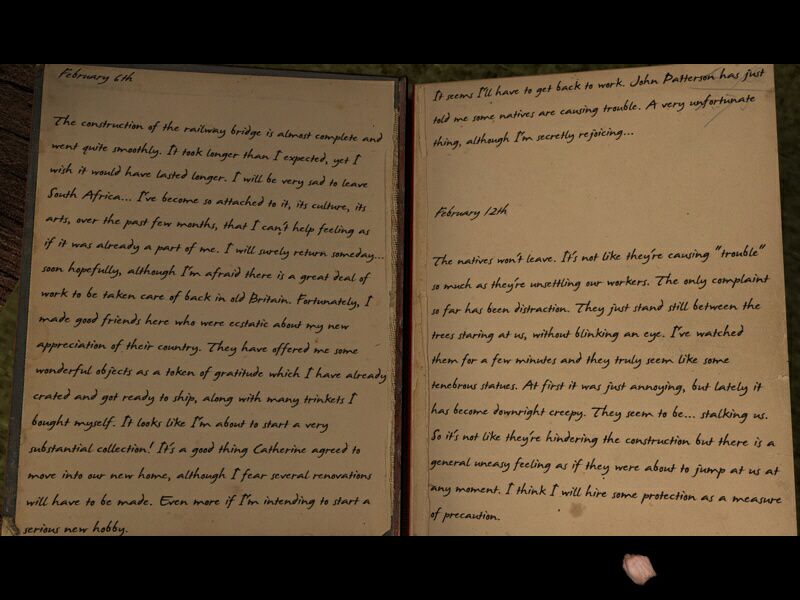 February 6th
The construction of the railway bridge is almost complete and
went quite smoothly. It took longer than I expected, yet I
wish it would have lasted longer. I will be very sad to leave
South Africa... I've become so attached to it, its culture, its
arts, over the past few months, that I can't help feeling as
if it was already a part of me. I will surely return someday...
soon hopefully, although I'm afraid there is a great deal of
work to be taken care of back in old Britain. Fortunately, I
made good friends here who were ecstatic about my new
appreciation of their country. They have offered me some
wonderful objects as a token of gratitude which I have already
crated and got ready to ship, along with many trinkets I
bought myself. It looks like I'm about to start a very
substantial collection! It's a good thing Catherine agreed to
move into our new home, although I fear several renovations
will have to be made. Even more if I'm intending to start a
serious new hobby.
It seems I'll have to get back to work. John Patterson has just
told me some natives are causing trouble. A very unfortunate
thing, although I'm secretly rejoicing...
February 12th
The natives won't leave. It's not like they're causing "trouble"
so much as they're unsettling our workers. The only complaint
so far has been distraction. They just stand still between the
trees staring at us, without blinking an eye. I've watched
them for a few minutes and they truly seem like some
tenebrous statues. At first it was just annoying, but lately it
has become downright creepy. They seem to be... stalking us.
So it's not like they're hindering the construction but there is a
general uneasy feeling as if they were about to jump at us at
any moment. I think I will hire some protection as a measure
of precaution.